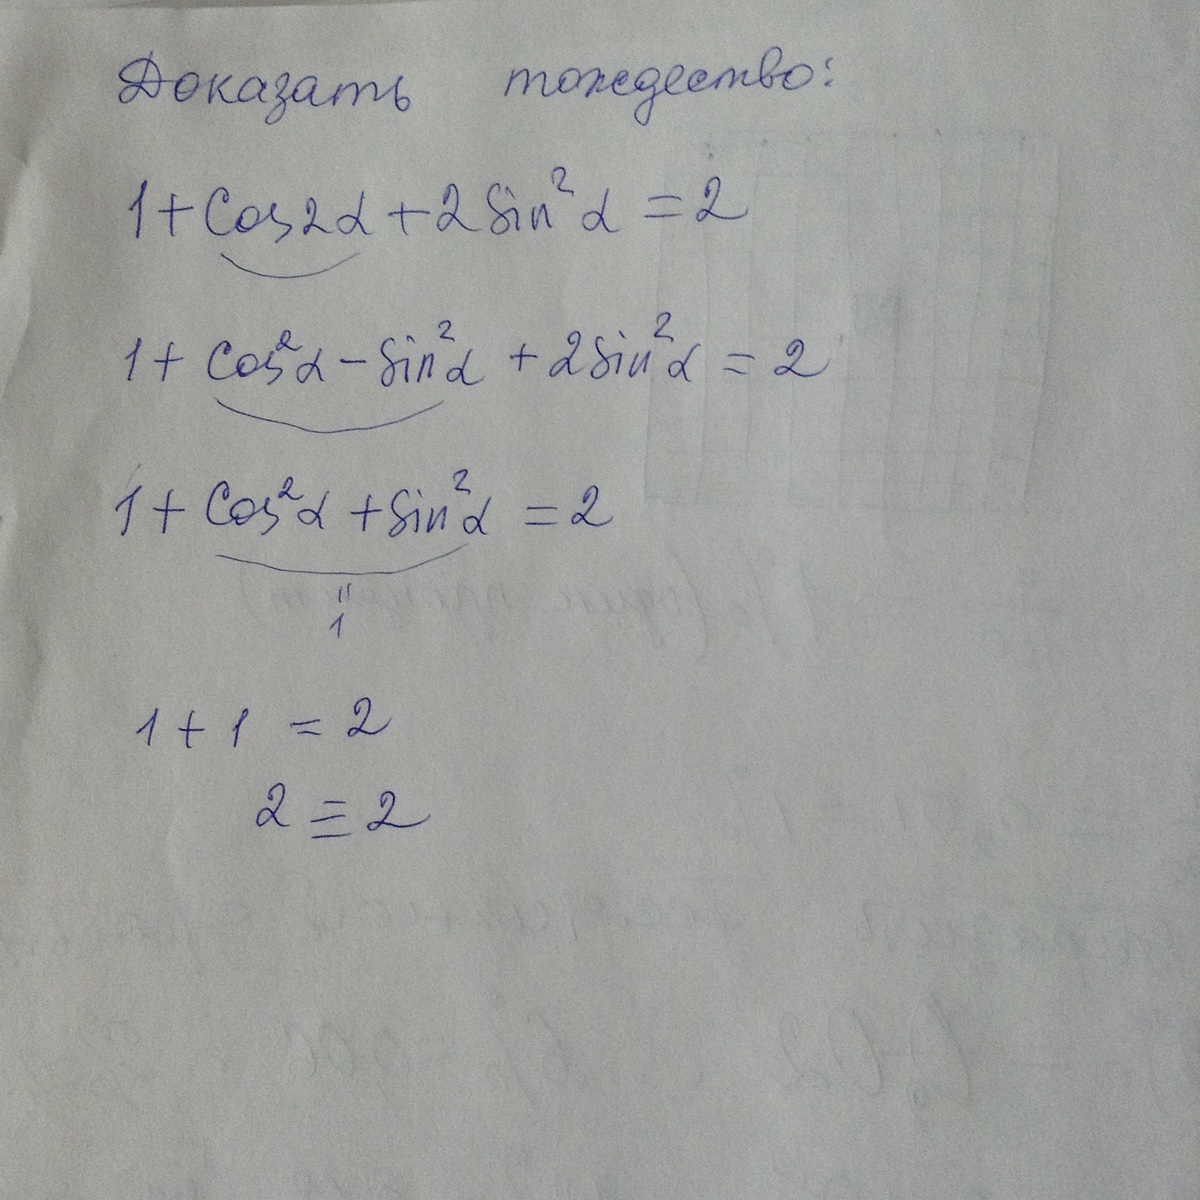 Доказать тождество:
1 + Cos2α + 2Sin²α = 2
1 + Cos²α - Sin²α + 2Sin²α = 2
1 + Cos²α + Sin²α = 2
"
1
1 + 1 = 2
2 ≡ 2